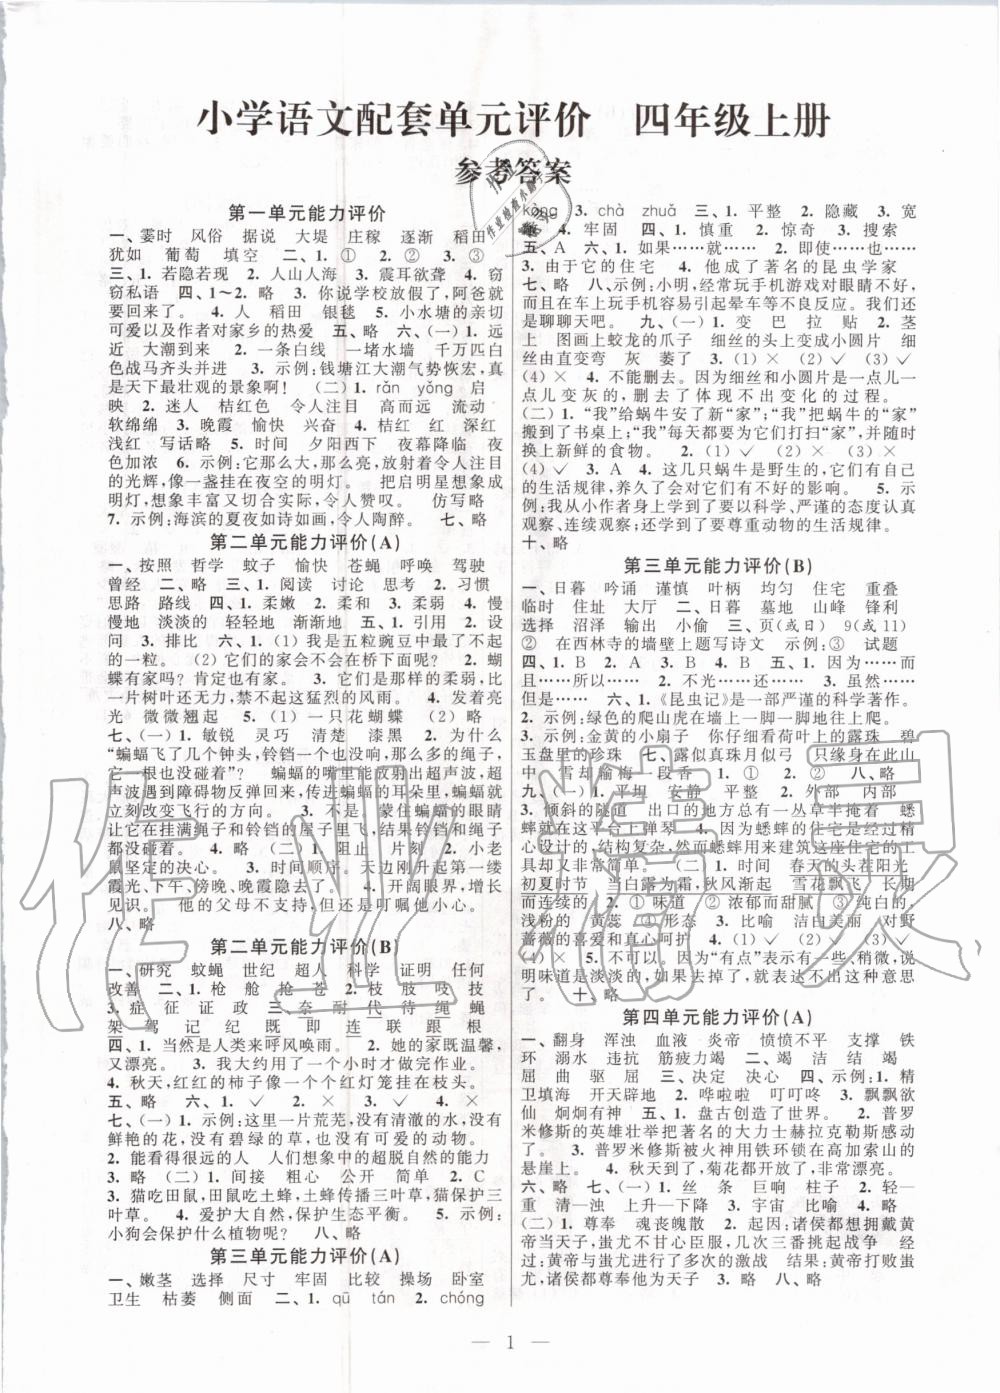 小学语文配套单元评价　四年级上册
参考答案
第一单元能力评价
一、霎时　风俗　据说　大堤　庄稼　逐渐　稻田
犹如　葡萄　填空　二、1. ①　2. ②　3. ③
三、1. 若隐若现　2. 人山人海　3. 震耳欲聋　4. 窃
窃私语　四、1～2. 略　3. 你说学校放假了,阿爸就
要回来了。　4. 人　稻田　银毯　5. 小水塘的亲切
可爱以及作者对家乡的热爱　五、略　六、(一)1. 远
近　大潮到来　2. 一条白线　一堵水墙　千万匹白
色战马齐头并进　3. 示例:钱塘江大潮气势恢宏,真
是天下最壮观的景象啊!　(二)1. rǎn　yǒng　启
映　2. 迷人　桔红色　令人注目　高而远　流动
软绵绵　3. 晚霞　愉快　兴奋　4. 桔红　红　深红
浅红　写话略　5. 时间　夕阳西下　夜幕降临　夜
色加浓　6. 示例:它那么大,那么亮,放射着令人注目
的光辉,像一盏挂在夜空的明灯。　把启明星想象成
明灯,想象丰富又切合实际,令人赞叹。　仿写略
7. 示例:海滨的夏夜如诗如画,令人陶醉。　七、略
第二单元能力评价(A)
一、按照　哲学　蚊子　愉快　苍蝇　呼唤　驾驶
曾经　二、略　三、1. 阅读　讨论　思考　2. 习惯
思路　路线　四、1. 柔嫩　2. 柔和　3. 柔弱　4. 慢
慢地　淡淡的　轻轻地　渐渐地　五、1. 引用　2. 设
问　3. 排比　六、1. (1) 我是五粒豌豆中最了不起
的一粒。　(2) 它们的家会不会在桥下面呢?　2. 蝴
蝶有家吗?肯定也有家。　3. 它们是那样的柔弱,比
一片树叶还无力,禁不起这猛烈的风雨。　4. 发着亮
光　微微翘起　5. (1) 一只花蝴蝶　(2) 略
七、(一)1. 敏锐　灵巧　清楚　漆黑　2. 为什么
“蝙蝠飞了几个钟头,铃铛一个也没响,那么多的绳子,
它一根也没碰着”?　蝙蝠的嘴里能放射出超声波,超
声波遇到障碍物反弹回来,传进蝙蝠的耳朵里,蝙蝠就
立刻改变飞行的方向。　3. 不是。　蒙住蝙蝠的眼睛
让它在挂满绳子和铃铛的屋子里飞,结果铃铛和绳子
都没碰着。　4. 略　(二)1. 阻止　片刻　2. 小老
鼠坚定的决心。　3. 时间顺序。天边刚升起第一缕
霞光、下午、傍晚、晚霞隐去　4. 开阔眼界,增长
见识。　他的父母不支持,但还是叮嘱他小心。
八、略
第二单元能力评价(B)
一、研究　蚊蝇　世纪　超人　科学　证明　任何
改善　二、1. 枪　舱　抢　苍　2. 枝　肢　吱　技
3. 症　征　证　政　三、奈　耐　代　待　绳　蝇
架　驾　记　纪　既　即　连　联　跟　根
四、1. 当然是人类来呼风唤雨。　2. 她的家既温馨,
又漂亮。　3. 我大约用了一个小时才做完作业。
4. 秋天,红红的柿子像一个个红灯笼挂在枝头。
五、略　六、1. ✓　2. ×　3. ✓　4. ×
七、(一)1. 示例:这里一片荒芜,没有清澈的水,没有
鲜艳的花,没有碧绿的草,也没有可爱的动物。
2. 能看得很远的人　具有幻想中的超脱自然的能力
3. 略　(二)1. 间接　粗心　公开　简单　2. C
3. 猫吃田鼠,田鼠吃土蜂,土蜂传播三叶草,猫保护三
叶草。　4. 爱护大自然,保护生态平衡。　5. 示例:
小狗会保护什么植物呢?　八、略
第三单元能力评价(A)
一、嫩茎　选择　尺寸　牢固　比较　操场　卧室
卫生　枯萎　侧面　二、1. qū　tán　2. chóng
kòng　3. chà　zhuǎ　三、1. 平整　2. 隐藏　3. 宽
敞　4. 牢固　四、1. 慎重　2. 惊奇　3. 搜索
五、A　六、1. 如果……就……　2. 即使……也……
3. 由于它的住宅　4. 他成了著名的昆虫学家
七、略　八、示例:小明,经常玩手机游戏对眼睛不好,
而且在车上玩手机容易引起晕车等不良反应。我们还
是聊聊天吧。　九、(一)1. 变　巴　拉　贴　2. 茎
上　图画上蛟龙的爪子　细丝的头上变成小圆片　细
丝由直变弯　灰　萎了　3. (1) ×　(2) ✓　(3) ✓
(4) ×　4. 不能删去。因为细丝和小圆片是一点儿一
点儿变灰的,删去了体现不出变化的过程。
(二)1. “我”给蜗牛安了新“家”;“我”把蜗牛的“家”
搬到了书桌上;“我”每天都要为它们打扫“家”,并随时
换上新鲜的食物。　2. (1) ✓　(2) ×　(3) ×
(4) ✓　3. A　4. 这几只蜗牛是野生的,它们有自己
的生活规律,养久了会对它们有不好的影响。　5. 示
例:我从小作者身上学到了要以科学、严谨的态度认真
观察、连续观察;还学到了要尊重动物的生活规律。
十、略
第三单元能力评价(B)
一、日暮　吟诵　谨慎　叶柄　均匀　住宅　重叠
临时　住址　大厅　二、日暮　墓地　山峰　锋利
选择　沼泽　输出　小偷　三、页(或日)　9(或11)
②　在西林寺的墙壁上题写诗文　示例:③　试题
四、1. B　2. A　3. B　4. B　五、1. 因为……而
……所以……　2. 不光……还……　3. 虽然……
但是……　六、1. 《昆虫记》是一部严谨的科学著作。
2. 示例:绿色的爬山虎在墙上一脚一脚地往上爬。
3. 示例:金黄的小扇子　你仔仔细细叶子上的露珠　碧
玉盘里的珍珠　七、露似真珠月似弓　只缘身在此山
中　雪却输梅一段香　1. ①　2. ②　八、略
九、(一)1. 平坦　安静　平整　2. 外部　内部
3. 倾斜的隧道　出口的地方总有一丛草半掩着　蟋
蟀就在这平台上弹琴　4. 因为蟋蟀的住宅是经过精
心设计的,结构复杂,然而蟋蟀用来建筑这座住宅的工
具却又非常简单。　(二)1. 时间　春天的头在阳光
初夏时节　当白露为霜,秋风渐起　雪花飘飞　长期
而连续的　2. ①味道　②浓郁而甜腻　③纯白的,
浅粉的　黄蕊　④形态　3. 比喻　洁白美丽　对野
蔷薇的喜爱和真心呵护　4. (1) ✓　(2) ✓　(3) ✓
(4) ×　5. 不可以,因为“有点”表示有一些,稍微,说
明味道是淡淡的,如果去掉了,就不能表达出这种意思
了。　十、略
第四单元能力评价(A)
一、翻身　浑浊　血液　炎帝　愤愤不平　支撑　铁
环　溺水　违抗　筋疲力竭　二、竭　渴　喝　洁
屈　曲　驱　屈　三、决定　决心　四、示例:1. 精
卫填海　开天辟地　2. 哗啦啦　叮叮咚　3. 飘飘欲
仙　炯炯有神　五、1. 盘古创造了世界。　2. 普罗
米修斯的英雄壮举把著名的大力士赫拉克勒斯感动
了。　3. 普罗米修斯被火神用铁环锁在高加索山的
悬崖上。　4. 秋天到了,菊花开得非常漂亮。
六、略　七、(一)1. 丝　条　巨响　柱子　2. 轻—
重　清—浊　上升—下降　3. 宇宙　比喻　4. 略
(二)1. 尊奉　魂丧魄散　2. 起因:诸侯都想拥戴黄
帝当天子,蚩尤不甘心臣服,几次三番挑起战争　经
过:黄帝与蚩尤进行了多次的激战　结果:黄帝打败蚩
尤,诸侯都尊奉他为天子　3. 略　八、略
— 1 —
作业精灵